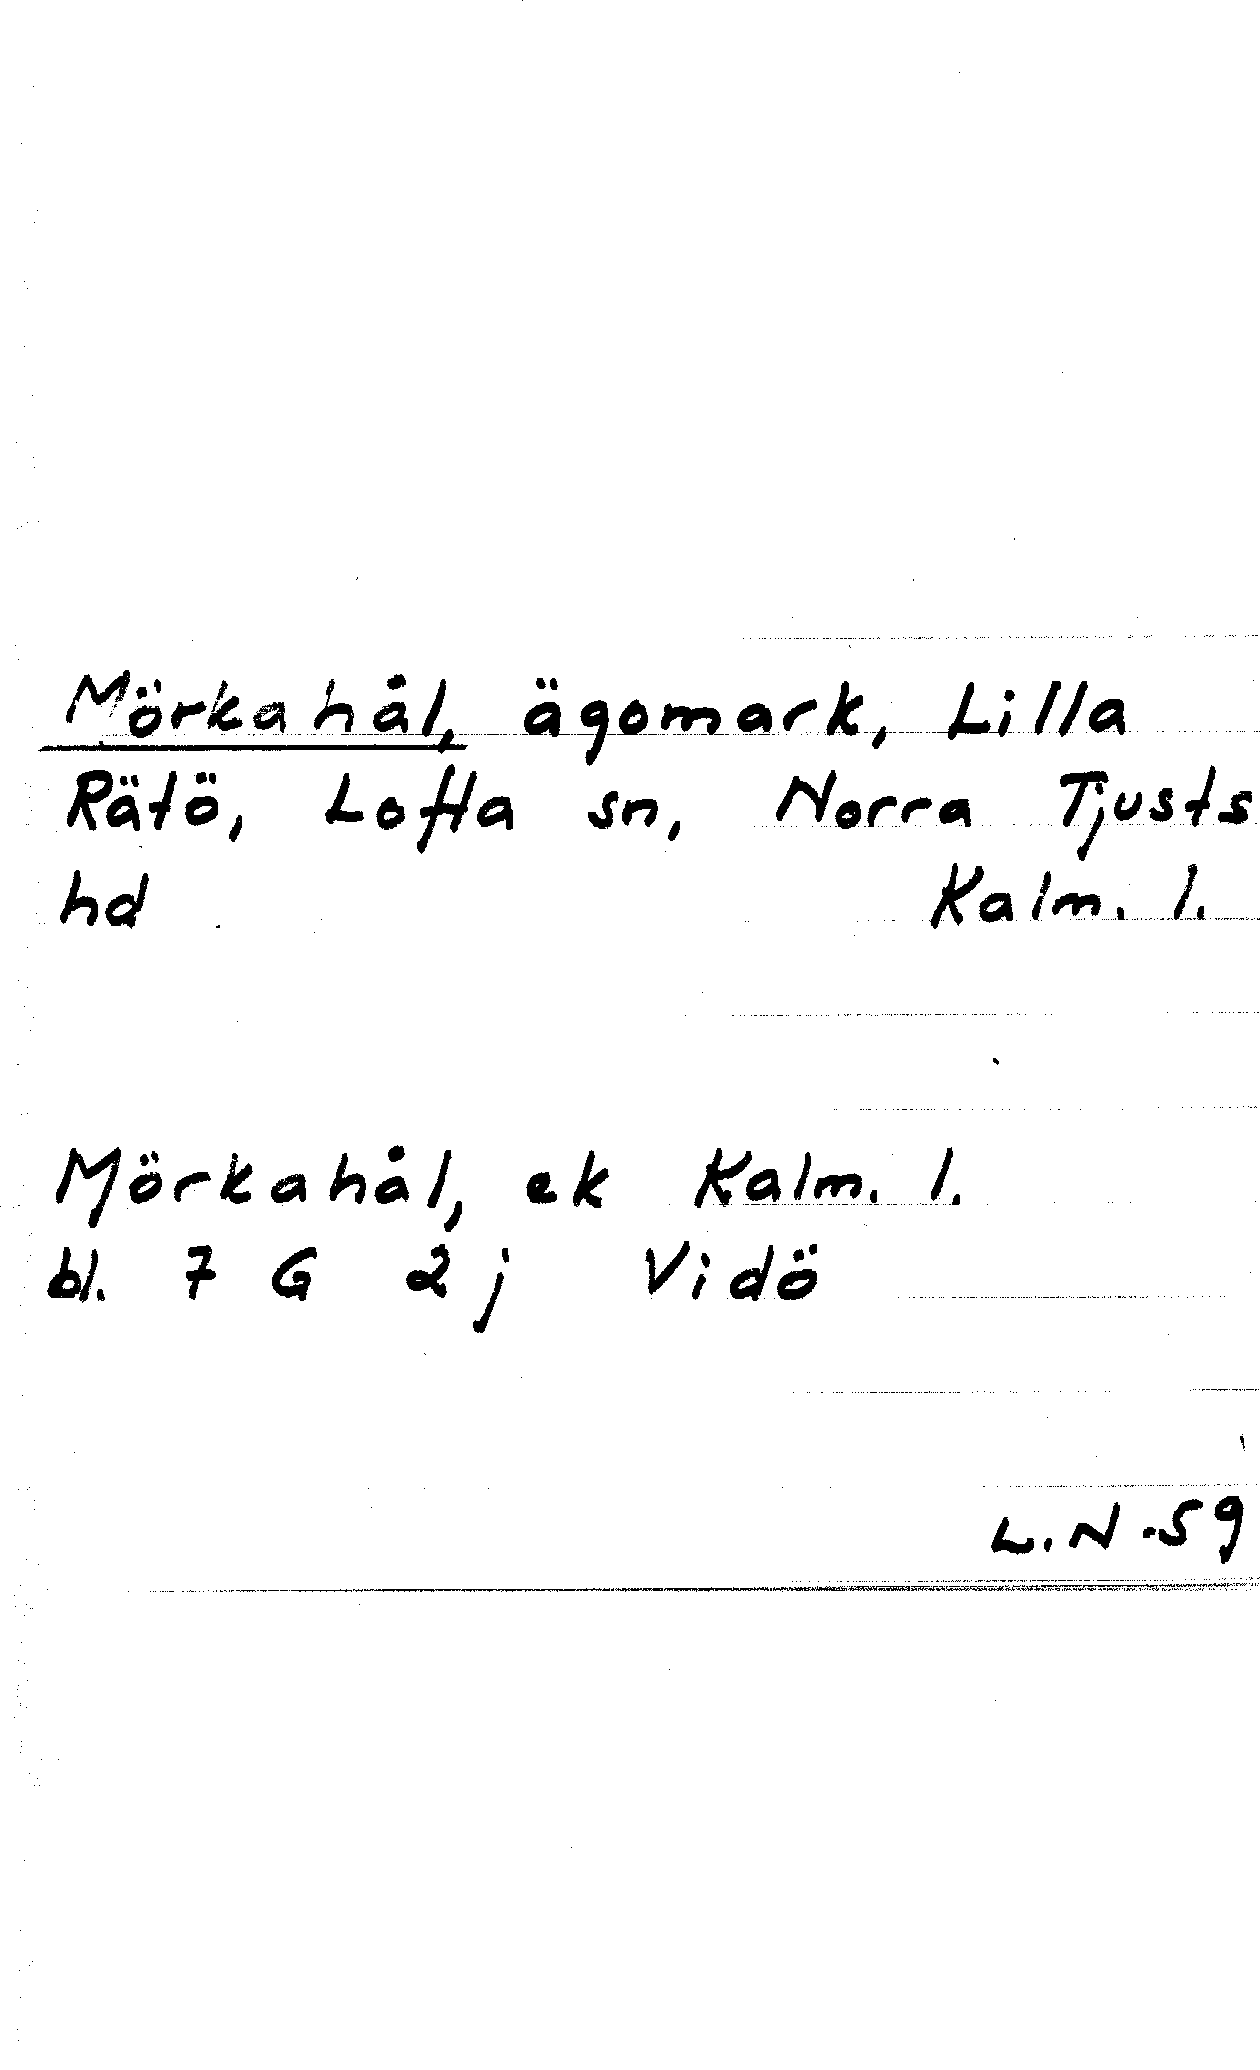 Mörkahål, ägomark, Lilla
Rätö, Lofta sn, Norra Tjusts
hd Kalm. l.
Mörkahål, ek Kalm. l.
bl. 7 G 2 j Vidö
L.N -59